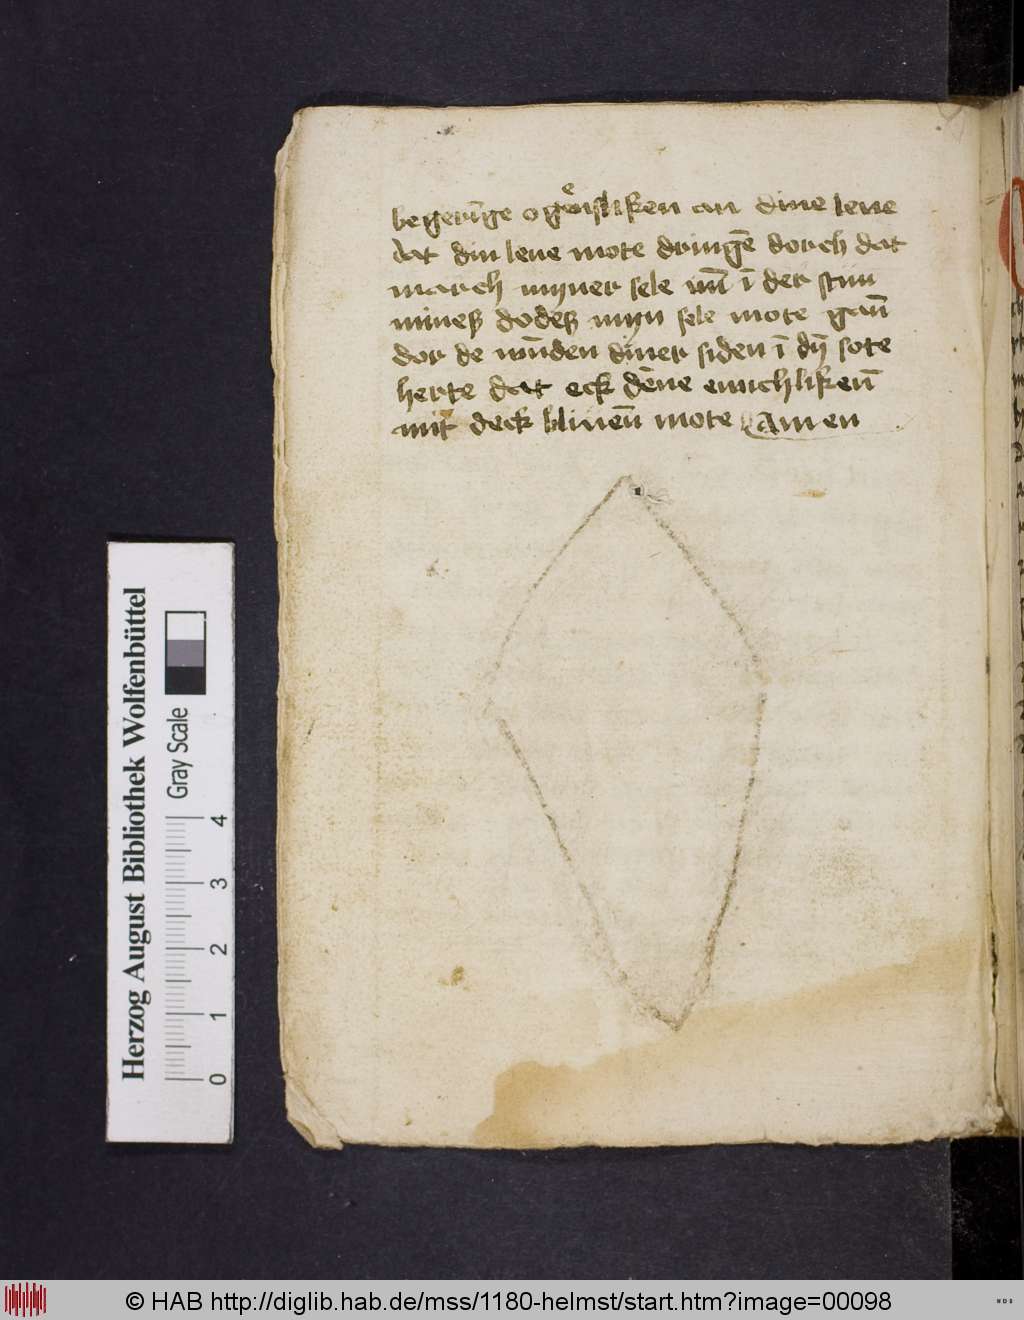 begerīge o gͤnisliken an dine leue
dat din leue mote dringē dorch dat
march myner sele vn̄ ī der stun
mines dodes myn sele mote gan̄
dor de wūden diner siden ī dȳ sote
herte dat eck dēne ewichliken̄
mit deck bliuen̄ mote Amen
Herzog August Bibliothek Wolfenbüttel
Gray Scale
0 1 2 3 4
© HAB http://diglib.hab.de/mss/1180-helmst/start.htm?image=00098